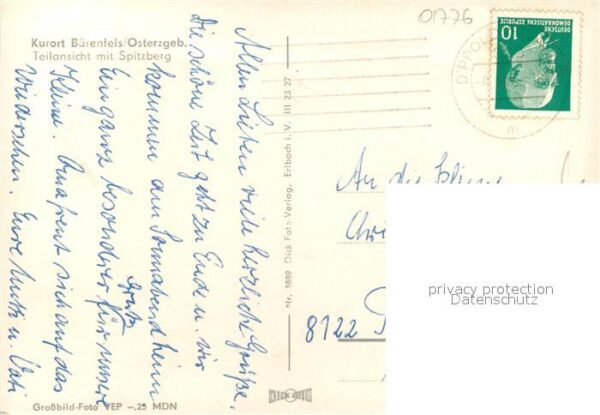 01776
Kurort Bärenfels/Osterzgeb.
Teilansicht mit Spitzberg
DEUTSCHE
DEMOKRATISCHE REPUBLIK
10
Allen Lieben viele herzliche Grüße.
Die schöne Zeit geht zu Ende u. wir
kommen am Sonnabend heim
Ein ganz besonderer für unsere
Gruß
Kleine. Oma freut sich auf das
Wiedersehen. Eure Mutti u. Vati
Nr. 3889 Dick Foto-Verlag, Erlbach i. V. III 23 27
An die
8122
privacy protection
Datenschutz
Großbild-Foto VEP -,25 MDN